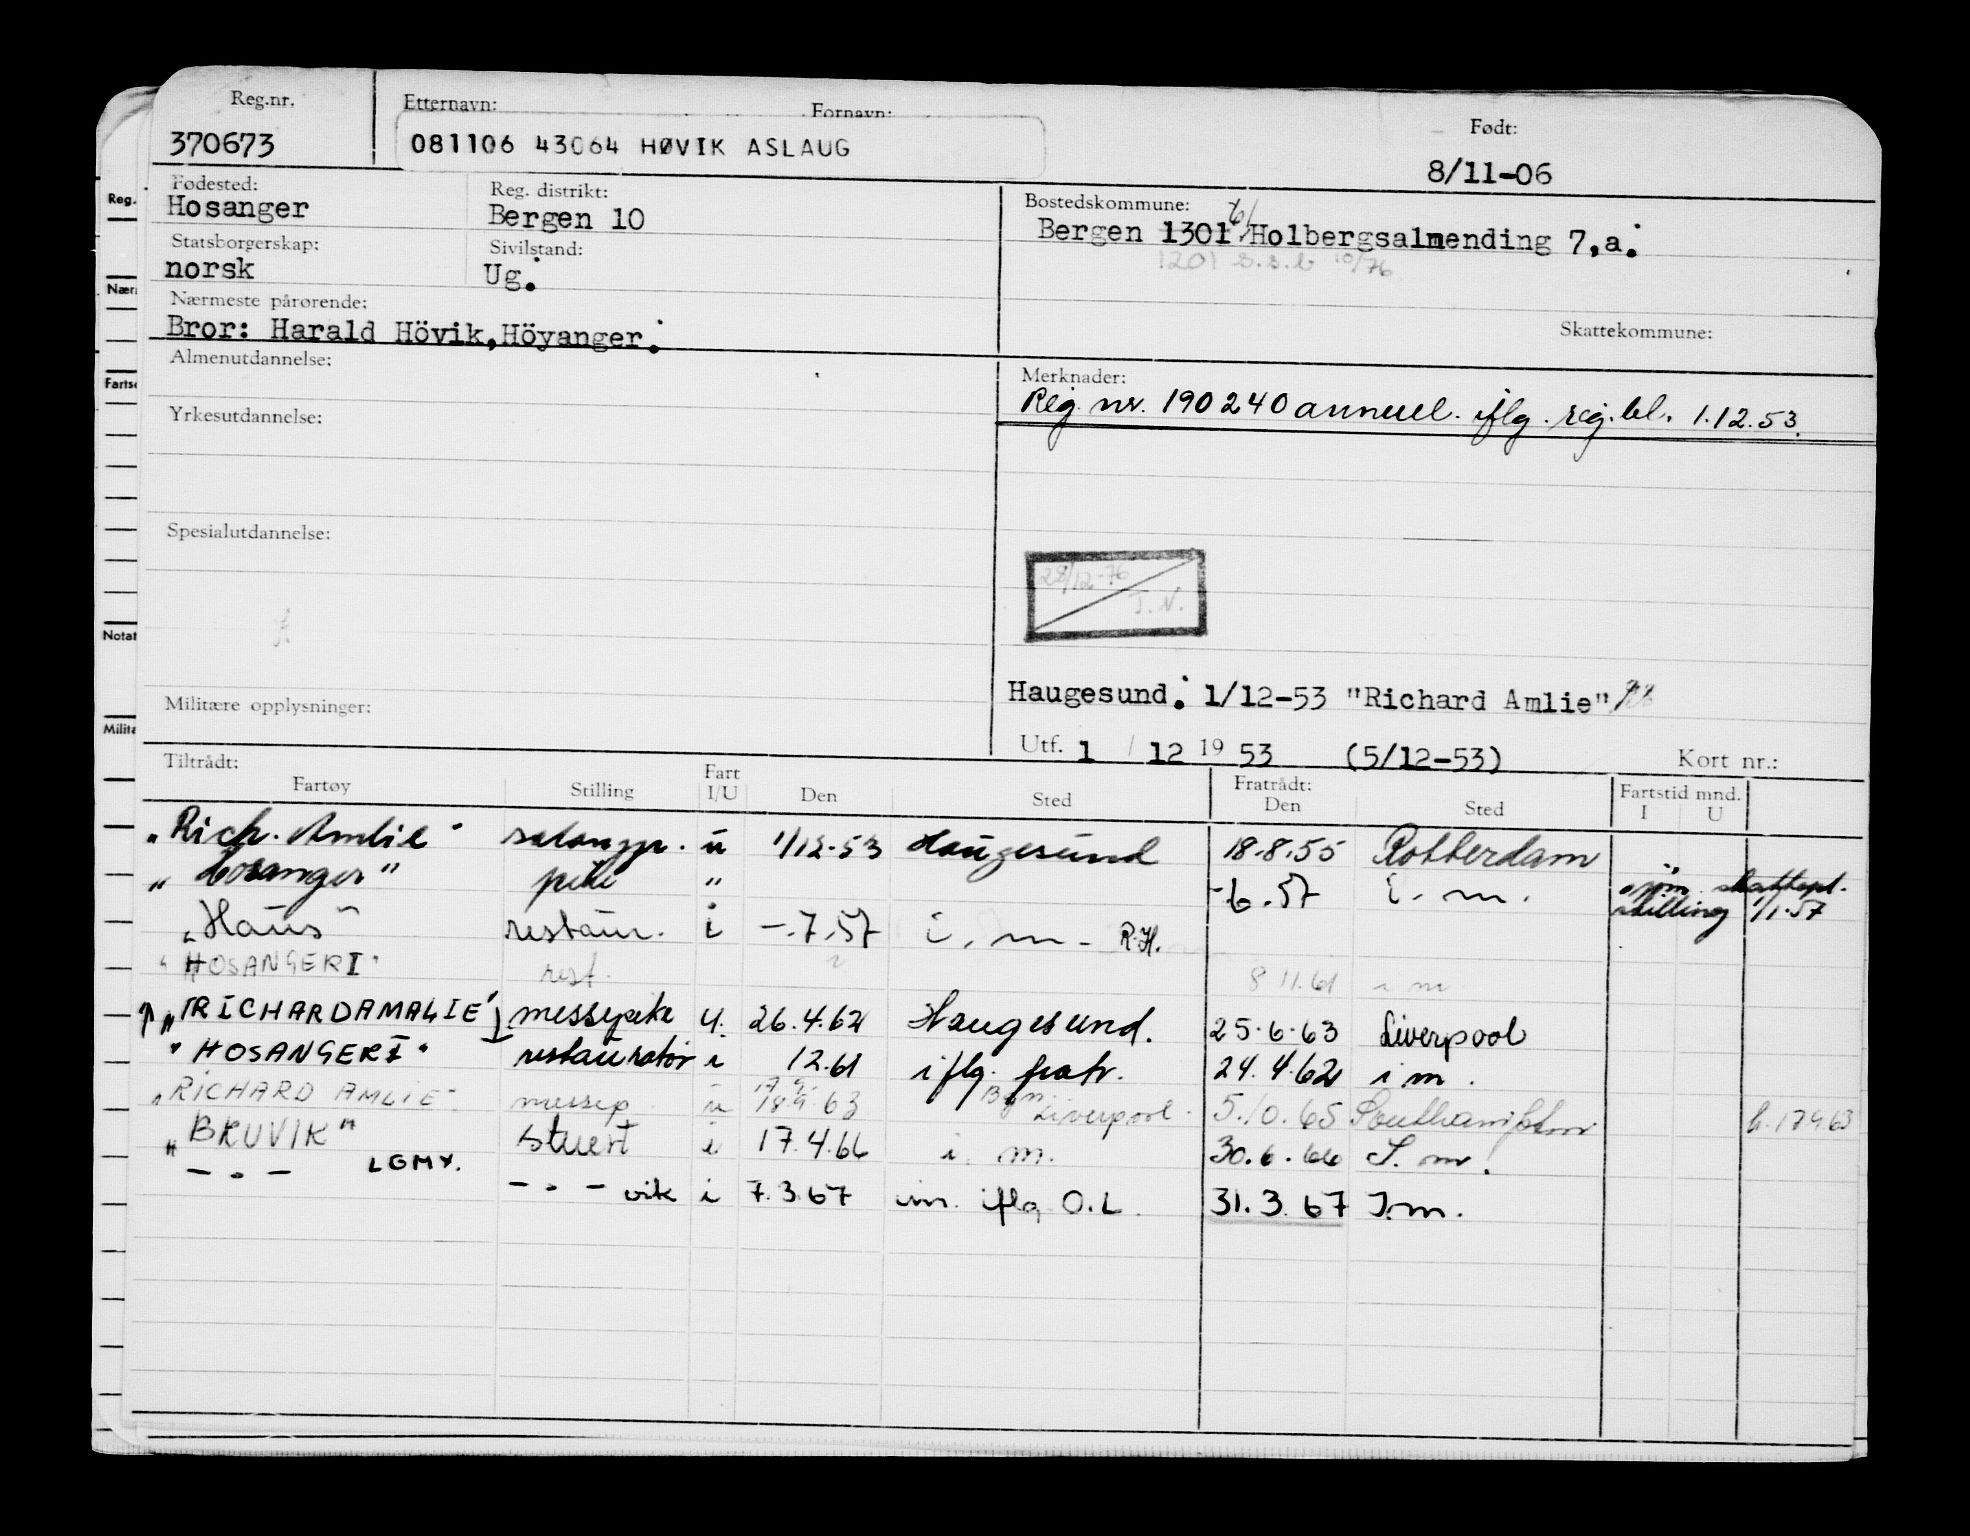 Reg.nr. Etternavn: Fornavn: Født:
370673 081106 43064 HØVIK ASLAUG 8/11-06
Fødested: Reg. distrikt: Bostedskommune:
Hosanger Bergen 10 Bergen 1301 Holbergsalmending 7,a.
Statsborgerskap: Sivilstand: 1201 s.s.b 10/76
norsk Ug.
Nærmeste pårørende: Skattekommune:
Bror: Harald Hövik, Höyanger.
Almenutdannelse: Merknader:
Reg nr. 190240 annull. iflg. reg.bl. 1.12.53.
Yrkesutdannelse:
Spesialutdannelse:
28/12-76
J.N.
Haugesund. 1/12-53 "Richard Amlie"
Militære opplysninger: Utf. 1 / 12 19 53 (5/12-53) Kort nr.:
Tiltrådt: Fratrådt: Fartstid mnd.
Fartøy Stilling Fart I/U Den Sted Den Sted I U
"Rich. Amlie" salongp. u 1/12-53 Haugesund 18.8.55 Rotterdam
"Hosanger" pike " -6.57 i.m. skattepl. stilling 1/1-57
"Haus" restaur. i -.7.57 i.m. R.H.
"HOSANGER I" rest. 8 11.61 i m
"RICHARD AMALIE" messepike u. 26.4.62 Haugesund. 25.6.63 Liverpool
"HOSANGER I" restauratør i 12.61 iflg. fratr. 24.4.62 i m.
"RICHARD AMLIE" messep u 18.9.63 Bgn Liverpool. 5.10.65 Southampton
"BRUVIK" Stuert i 17.4.66 i. m. 30.6.66 I.m.
— " — LGMX. — " — vik i 7.3.67 im. iflg O.L. 31.3.67 I.m.
Reg.
Nær
Farts
Notat
Milit